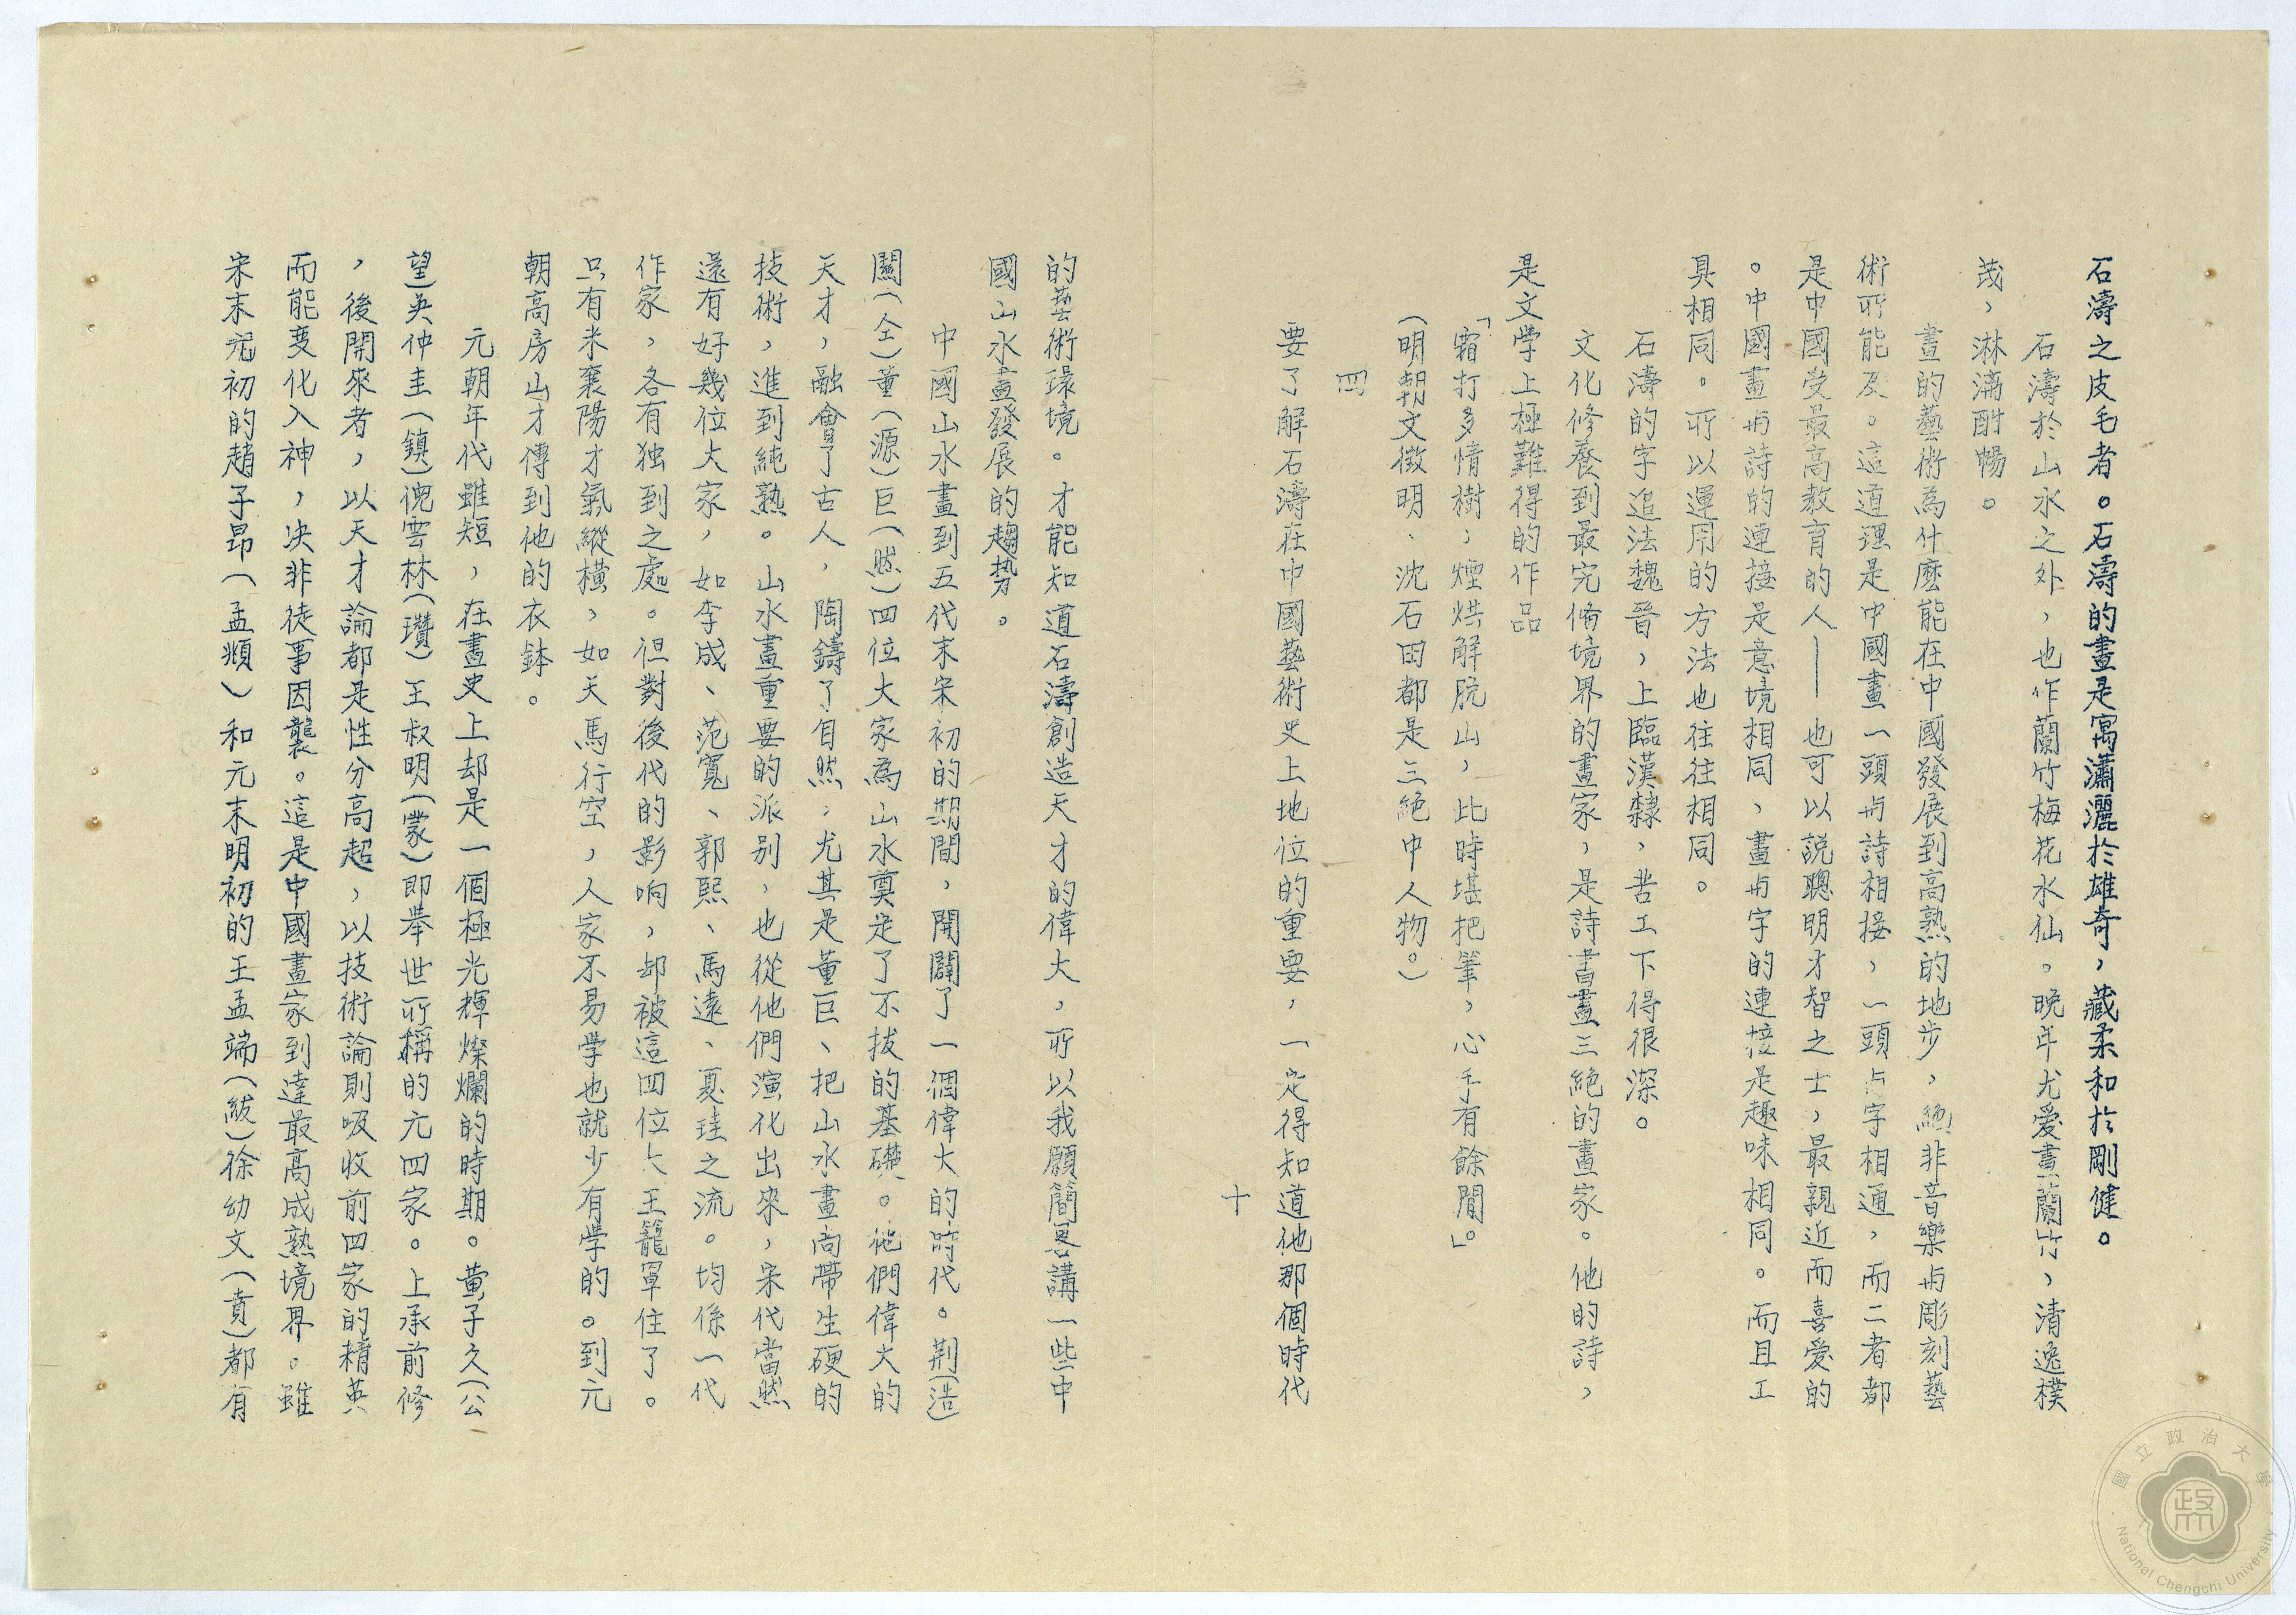 石濤之皮毛者。石濤的畫是寓瀟灑於雄奇,藏柔和於剛健。
石濤於山水之外,也作蘭竹梅花水仙。晚年尤爱畫蘭竹,清逸樸
茂,淋漓酣暢。
畫的藝術為什麼能在中國發展到高熟的地步,絕非音樂与彫刻藝
術所能及。這道理是中國畫一頭与詩相接,一頭与字相通,而二者都
是中國受最高教育的人——也可以説聰明才智之士,最親近而喜愛的
。中國畫与詩的連接是意境相同,畫与字的連接是趣味相同。而且工
具相同。所以運用的方法也往往相同。
石濤的字追法魏晉,上臨漢隸,苦工下得很深。
文化修養到最完備境界的畫家,是詩書畫三絕的畫家。他的詩,
是文学上極難得的作品
「霜打多情樹;煙烘解脱山,此時堪把筆,心手有餘閒。」
(明朝文徵明、沈石田都是三絕中人物。)
四
要了解石濤在中國藝術史上地位的重要,一定得知道他那個時代
十
的藝術環境。才能知道石濤創造天才的偉大,所以我願簡畧講一些中
國山水畫發展的趨勢。
中國山水畫到五代末宋初的期間,開闢了一個偉大的時代。荆(浩)
關(仝)董(源)巨(然)四位大家為山水奠定了不拔的基礎。他們偉大的
天才,融會了古人,陶鑄了自然;尤其是董巨、把山水畫尚帶生硬的
技術,進到純熟。山水畫重要的派别,也從他們演化出來,宋代當然
還有好幾位大家,如李成、范寬、郭熙、馬遠、夏珪之流。均係一代
作家,各有独到之處。但對後代的影响,却被這四位大王籠罩住了。
只有米襄陽才氣縱橫,如天馬行空,人家不易学也就少有学的。到元
朝高房山才傳到他的衣鉢。
元朝年代雖短,在畫史上却是一個極光輝燦爛的時期。黄子久(公
望)吳仲圭(鎮)倪雲林(瓚)王叔明(蒙)即举世所稱的元四家。上承前修
,後開來者,以天才論都是性分高超,以技術論則吸收前四家的精英
而能变化入神,决非徒事因襲。這是中國畫家到達最高成熟境界。雖
宋末元初的趙子昂(孟頫)和元末明初的王孟端(紱)徐幼文(賁)都有
國立政治大學
National Chengchi University